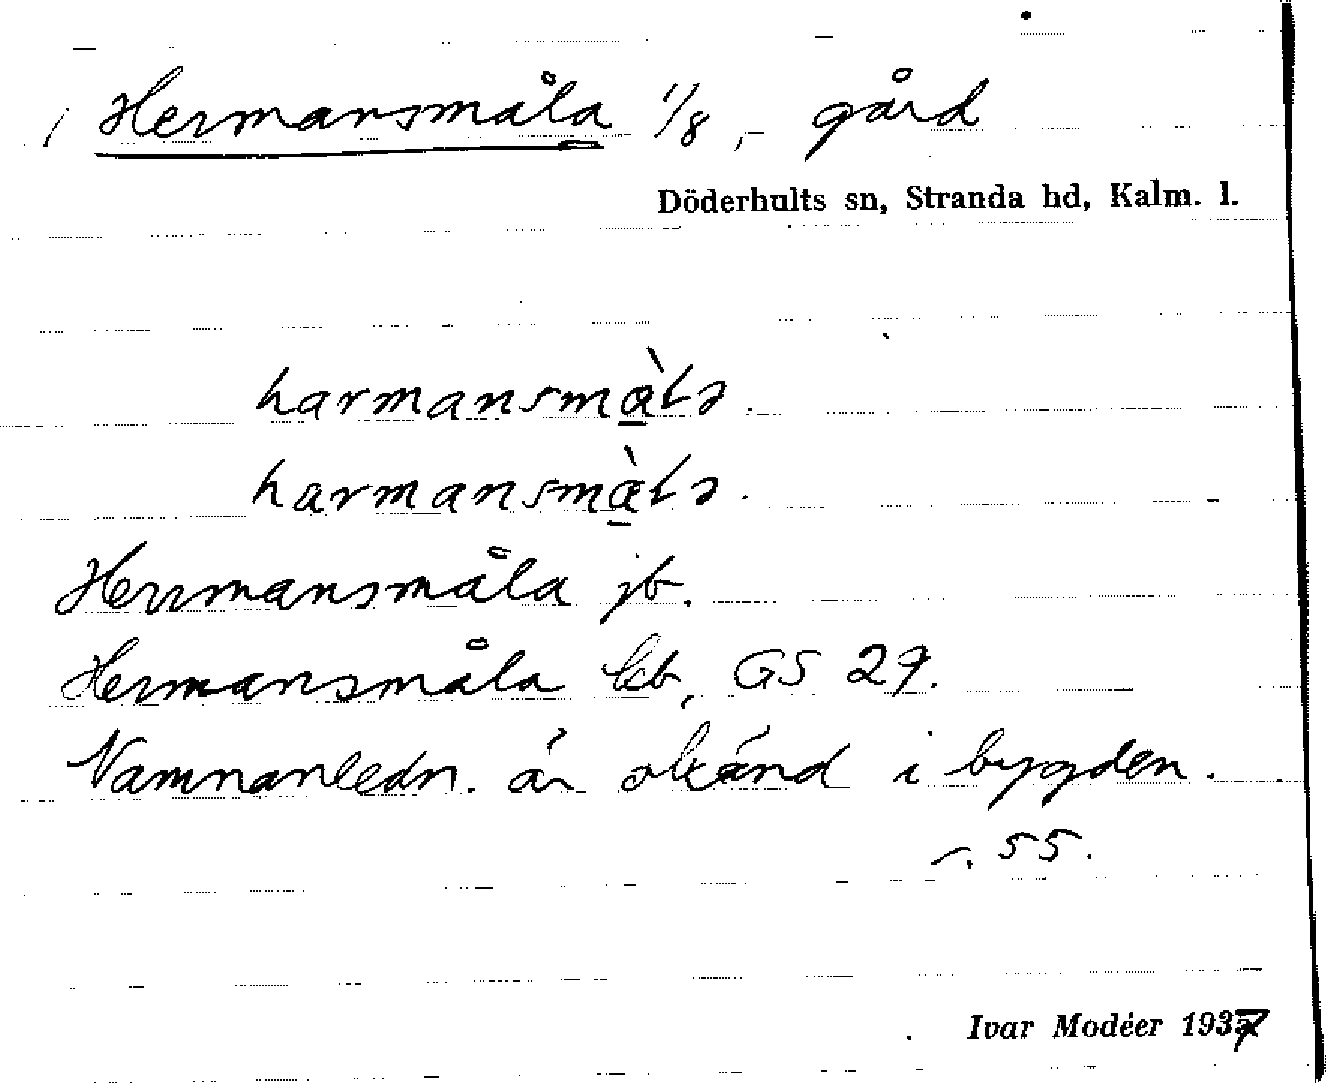 Hermansmåla 1/8, gård
Döderhults sn, Stranda hd, Kalm. l.
harmansmà̱lə.
harmansmà̱lə.
Herrmansmåla jb.
Hermansmåla kb, GS 29.
Namnanledn. är okänd i bygden.
s. 55.
Ivar Modéer 1937